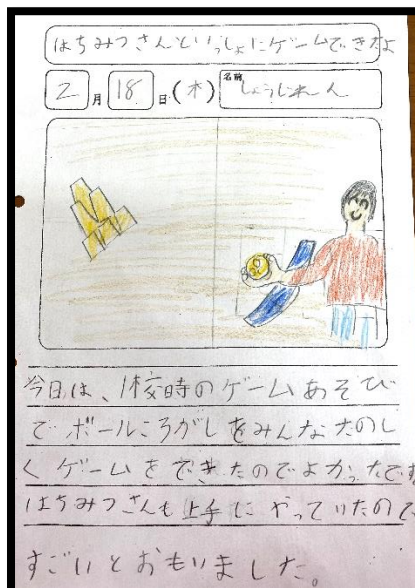 はちみつさんといっしょにゲームできたよ
2月18日(木) 名前 しょうじれーん
今日は、1校時のゲームあそび
でボールころがしをみんなたのし
くゲームをできたのでよかったです
はちみつさんも上手にやっていたので
すごいとおもいました。